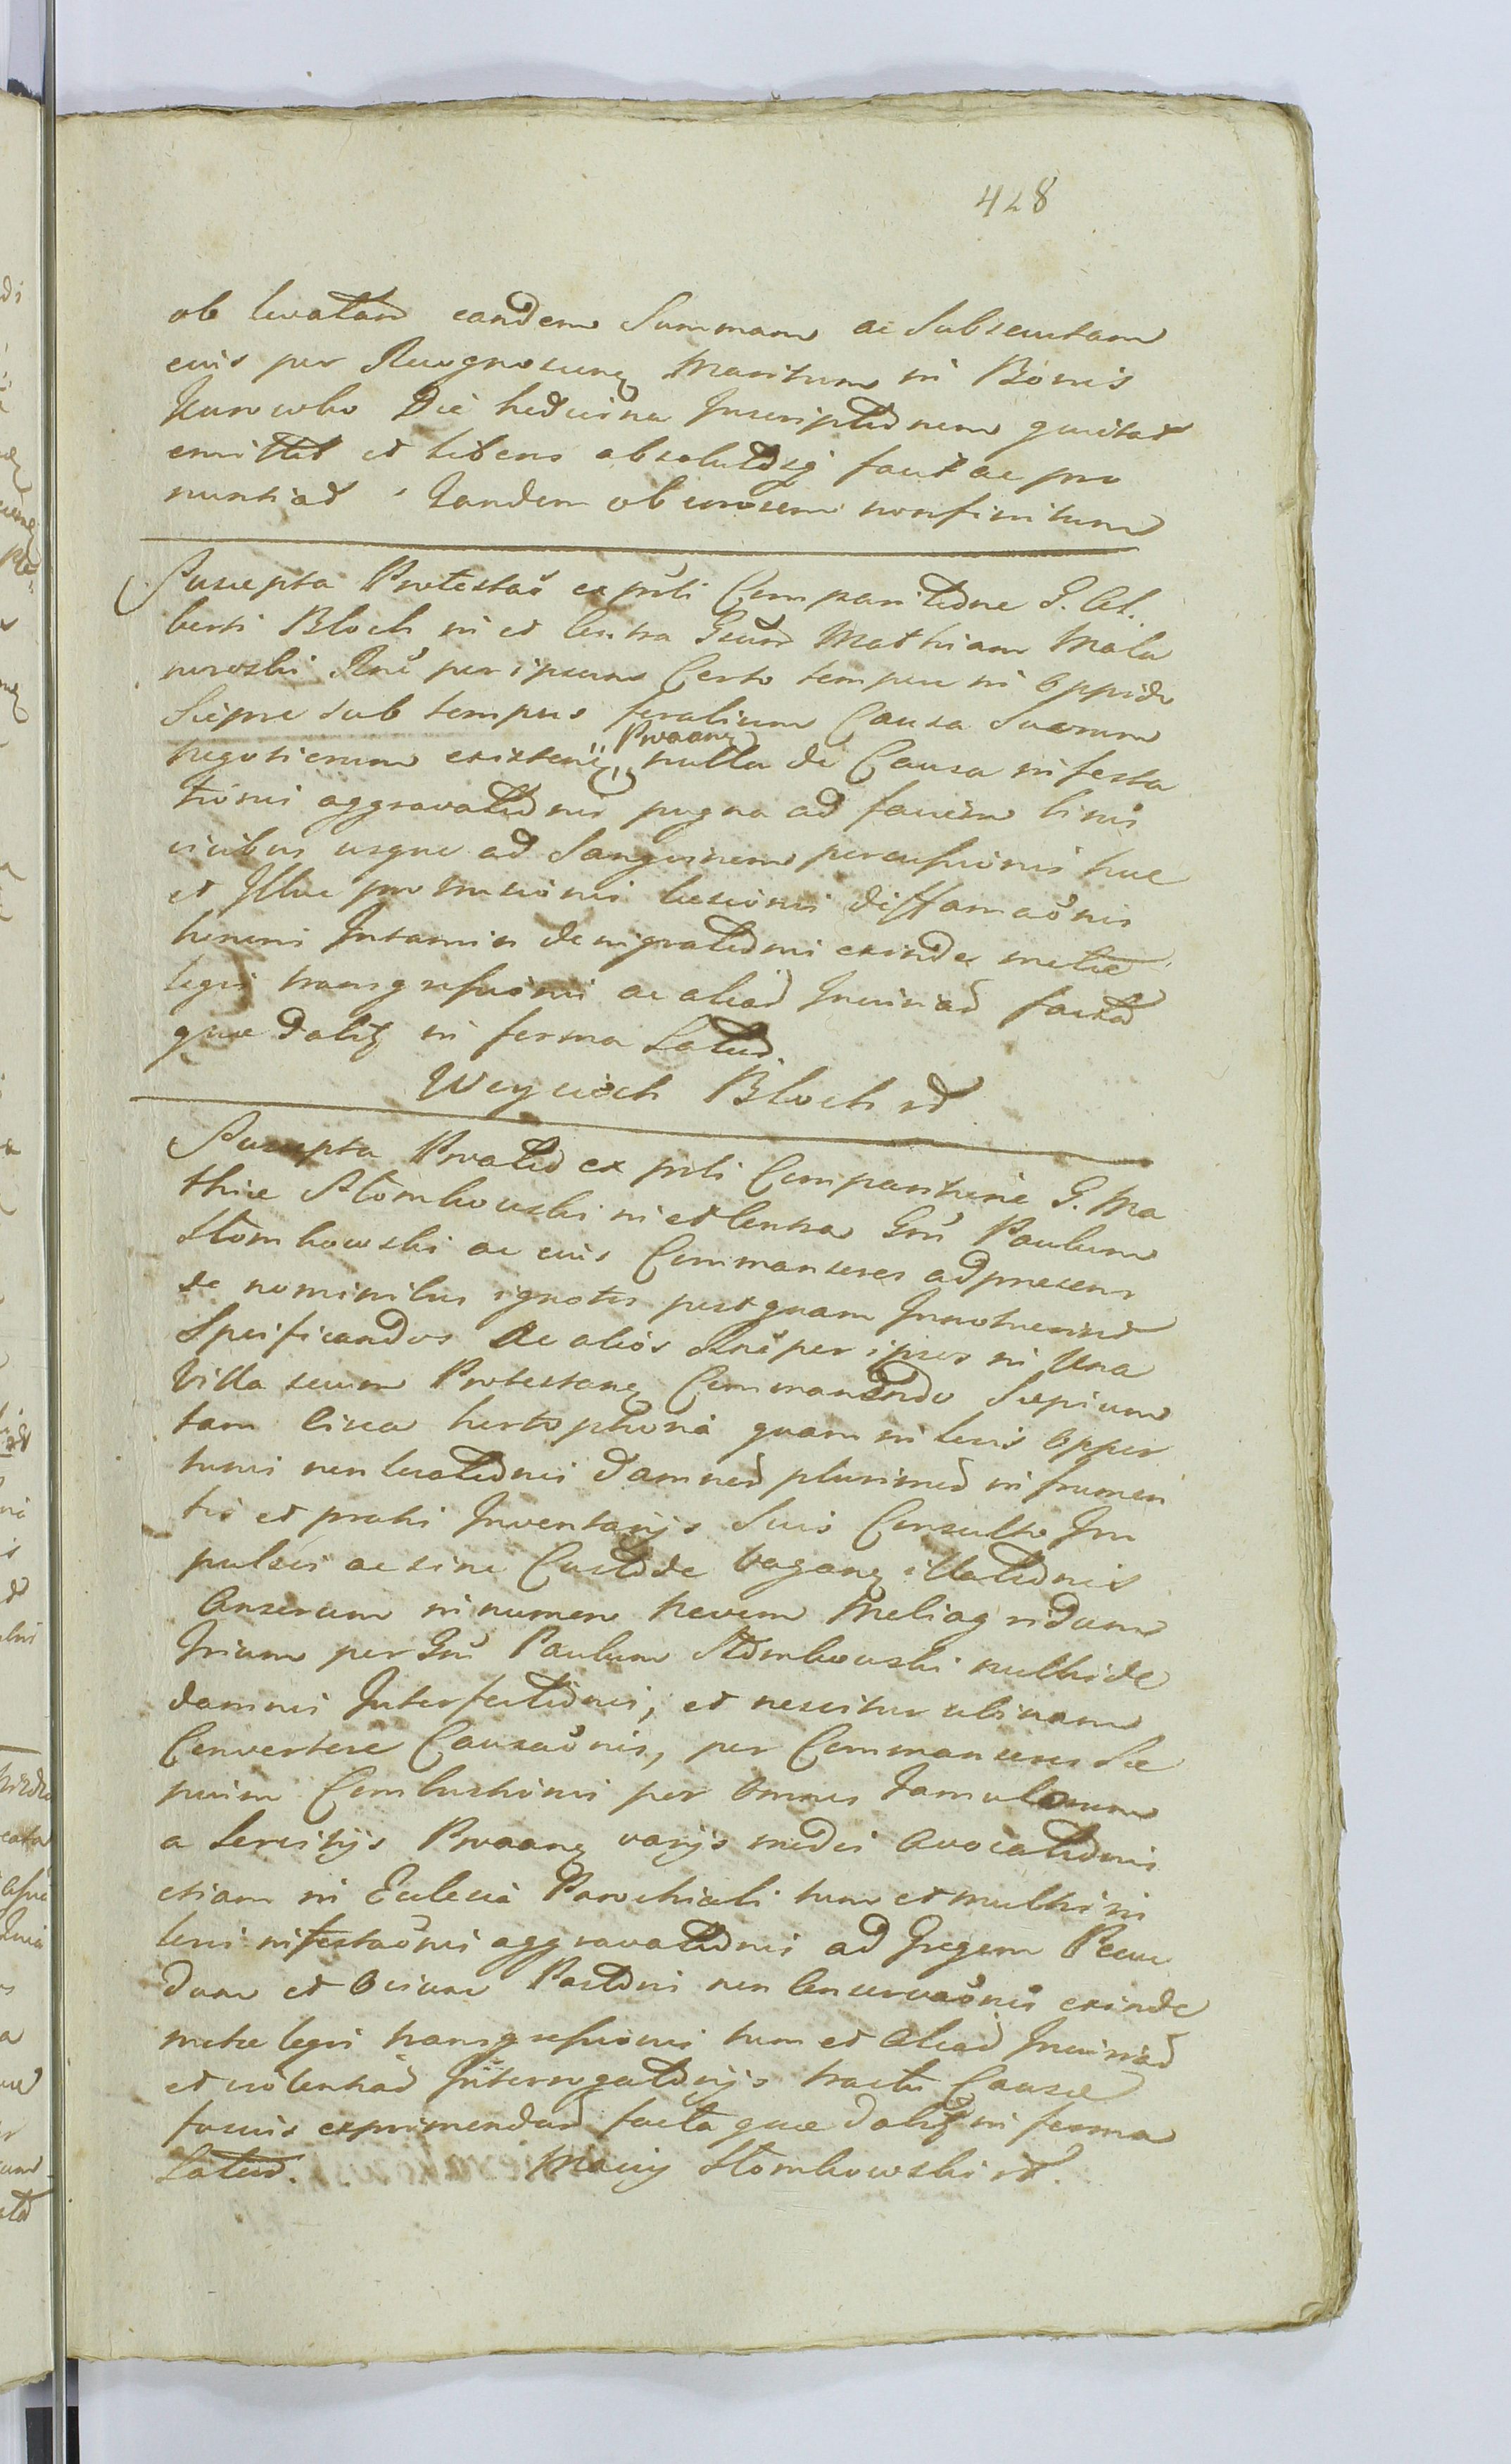 428
ob levatam eandem Summam ac Subsecutam
eius per Recognoscen Maritum in Bonis
Kurowko Die hodierna Inscriptionem quietat
emittit et liberos absolutosq facit ac pro
nuntiat. Tandem ob eorsem nonfinitum
Suscepta Protestao ex prsti Comparitione G. Al
berti Bloch in et contra Gsum Mathiam Mala
nowski Rne per ipsum Certo tempore in Oppido
Siepre sub tempus feralium Causa Suorum
negotiorum existen, Prvaan nulla de Causa infesta
tionis aggravationis pugna ad faciem binis
vicibus usque ad Sanguinem percussionis huc
et Illuc protrusionis lesionis diffamaonis
honoris Intamin denigrationis exinde metae
legis transgressionis ac aliad Iniuriad factad
que datis in forma Latiid.
Woyciech Bloch
Suscepta Prvatio ex prsti Comparitione G. Ma
thiae Stomkowski in et contra Gsu Paulum
Stomkowski ac eius Commansores ad presens
de nominibus ignotis postquam Innotuerind
Specificandos Ac alios Rne per ipsos in Una
Villa secum Protestan Commanendo Sepium
tam circa hortophona quam in locis Oppor
tunis non locationis damnod plurimod in frumen
tis et pratis Inventarijs Suis Consulto Im
pulsis ac sine Custode vagan illationis
Anserum in numero Novem Meliagridum
Trium per Gsu Paulum Stomkowski nullis de
damnis Interfectionis, et nescitur ubinam
Convertere Causaonis, per Commansores Se
pium Combustionis per omnes Famulorum
a Servitijs Prvaan varijs modis Avocationis
etiam in Eclesia Parochiali tum et multis in
locis infestaonis aggravationis ad Gregem Pecu
dum et Ovium Pastoris non conservaonis exinde
metae legis transgressionis tum et aliad Iniuriad
et violentiad Interrogatorijs tractu Causae
fusius exprimendad facta que datis in forma
Latiid. Maciy Stomkowski